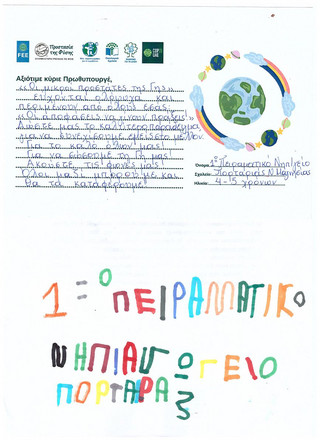 FEE
Προστασία της Φύσης
Αξιότιμε κύριε Πρωθυπουργέ,
«Οι μικροί προστάτες της Γης»
εύχονται ολόψυχα και
περιμένουν από όλους εσάς,
«Οι αποφάσεις να γίνουν πράξεις!
Δώστε μας το καλύτερο παράδειγμα,
για να συνεχίσουμε εμείς στο μέλλον
Για το καλό όλων μας!
Για να σώσουμε τη Γη μας!
Ακούστε τις φωνές μας!
Όλοι μαζί μπορούμε και
θα τα καταφέρουμε!
Όνομα: 1ο Πειραματικό Νηπ/γείο
Σχολείο: Πορταριάς Ν. Μαγνησίας
Ηλικία: 4-5 χρονών
1=ο ΠΕΙΡΑΜΑΤΙΚΟ
ΝΗΠΙΑΓΩΓΕΙΟ